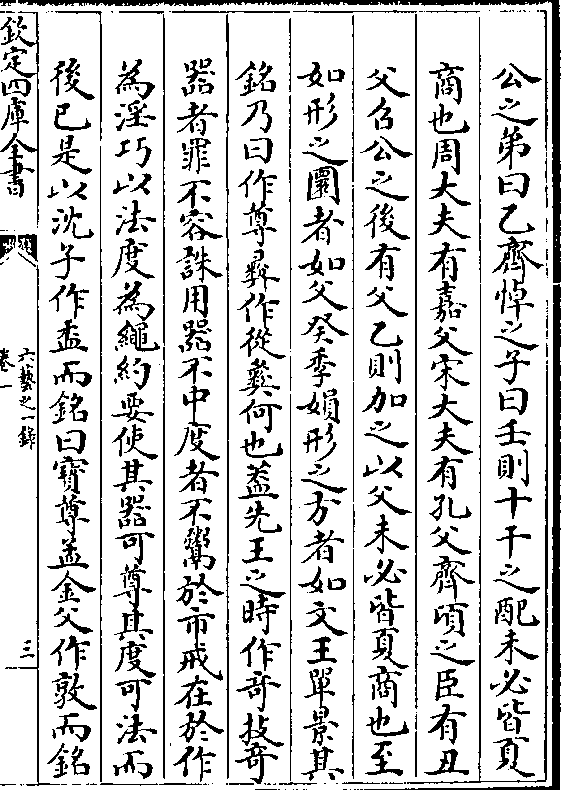 公之弟曰乙齊悼之子曰壬則十干之配未必皆夏
商也周大夫有嘉父宋大夫有孔父齊頃之臣有丑
父召公之後有父乙則加之以父未必皆夏商也至
如形之圜者如父癸季娟形之方者如文王單景其
銘乃曰作尊彛作從彛何也葢先王之時作竒技竒
器者罪不容誅用器不中度者不鬻於市戒在於作
為淫巧以法度為繩約要使其器可尊其度可法而
後已是以沈子作盉而銘曰寳尊盂金父作敦而銘
欽定四庫全書
六藝之一錄
卷一
三